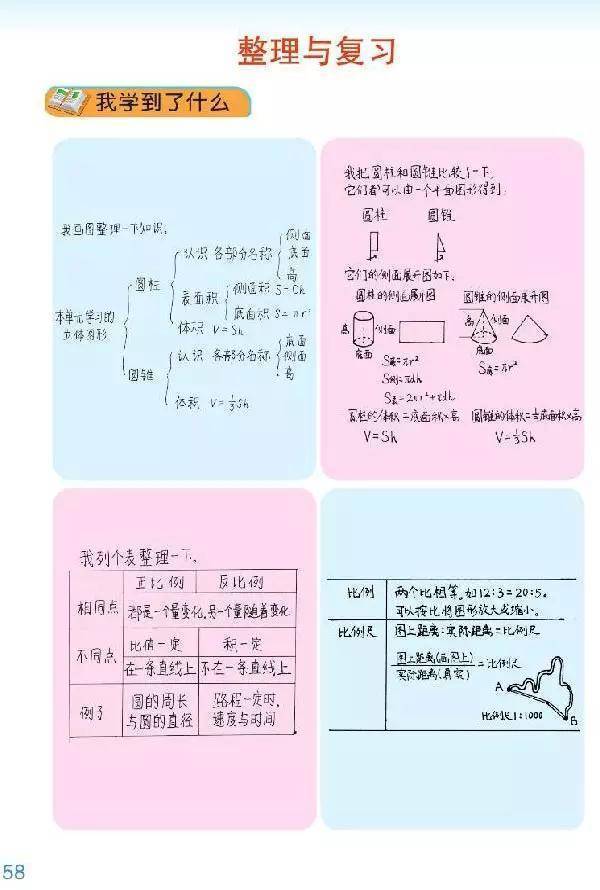 整理与复习
我学到了什么
我画图整理一下知识。
本单元学习的
立体图形
圆柱
认识 各部分名称
侧面
底面
高
表面积
侧面积 S=Ch
底面积 S=πr²
体积 V=Sh
圆锥
认识 各部分名称
底面
侧面
高
体积 V=⅓Sh
我把圆柱和圆锥比较了一下。
它们都可以由一个平面图形得到。
圆柱 圆锥
它们的侧面展开图如下。
圆柱的侧面展开图 圆锥的侧面展开图
高 侧面 高 侧面
底面 底面
S底=πr² S底=πr²
S侧=πdh
S表=2πr²+πdh
圆柱的体积=底面积×高 圆锥的体积=⅓底面积×高
V=Sh V=⅓Sh
我列个表整理一下。
正比例 反比例
相同点 都是一个量变化,另一个量随着变化
不同点 比值一定 积一定
在一条直线上 不在一条直线上
例子 圆的周长与圆的直径 路程一定时,速度与时间
比例 两个比相等。如12:3=20:5。
可以按比将图形放大或缩小。
比例尺 图上距离:实际距离=比例尺
图上距离(画图上)
实际距离(真实)
=比例尺
A
B
比例尺1:1000
58